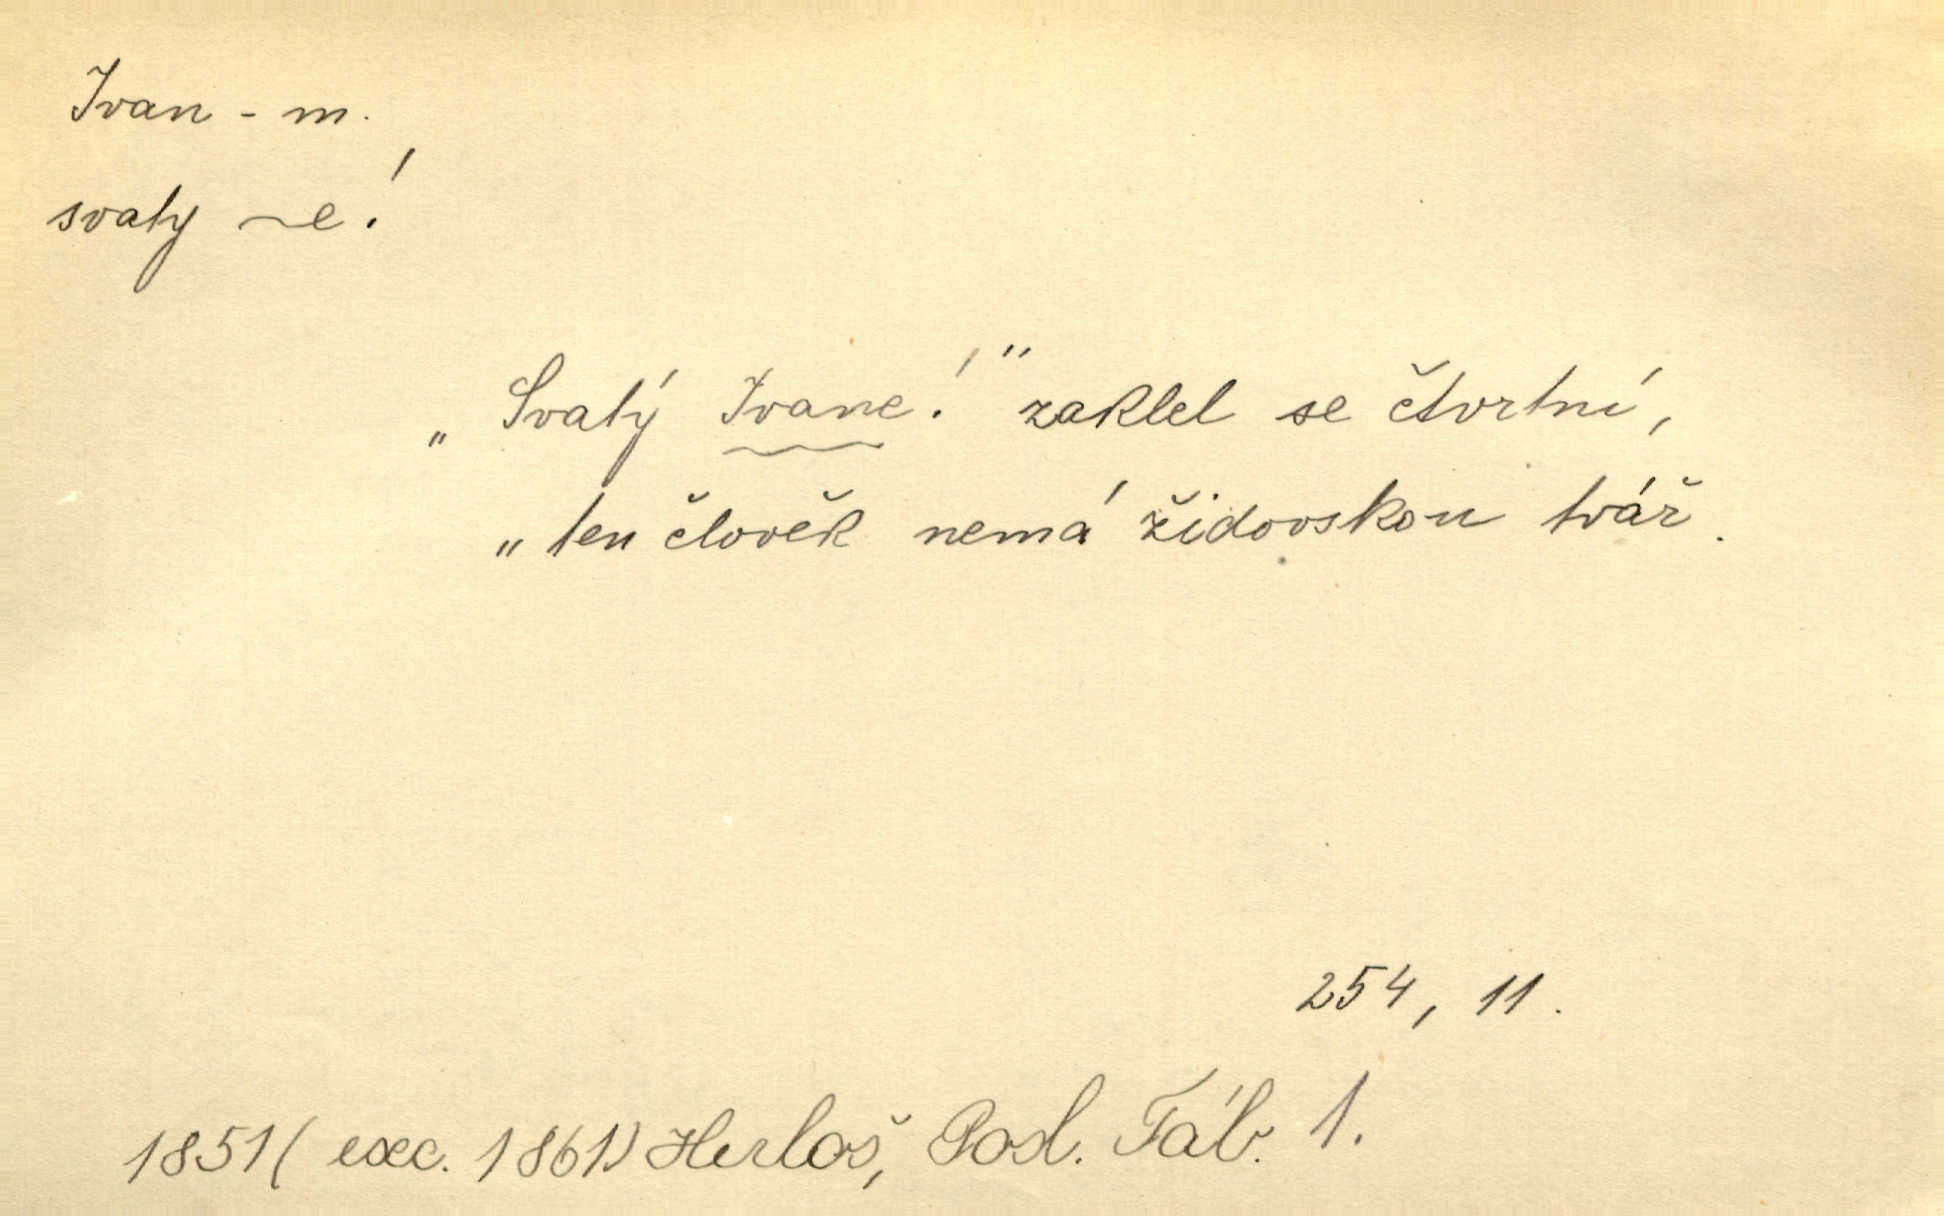 Ivan - m.
svatý ~e!
„Svatý Ivane!" zaklel se čtvrtní,
„ten člověk nemá židovskou tvář.
254, 11.
1851 (exc. 1861) Herloš, Posl. Táb. 1.